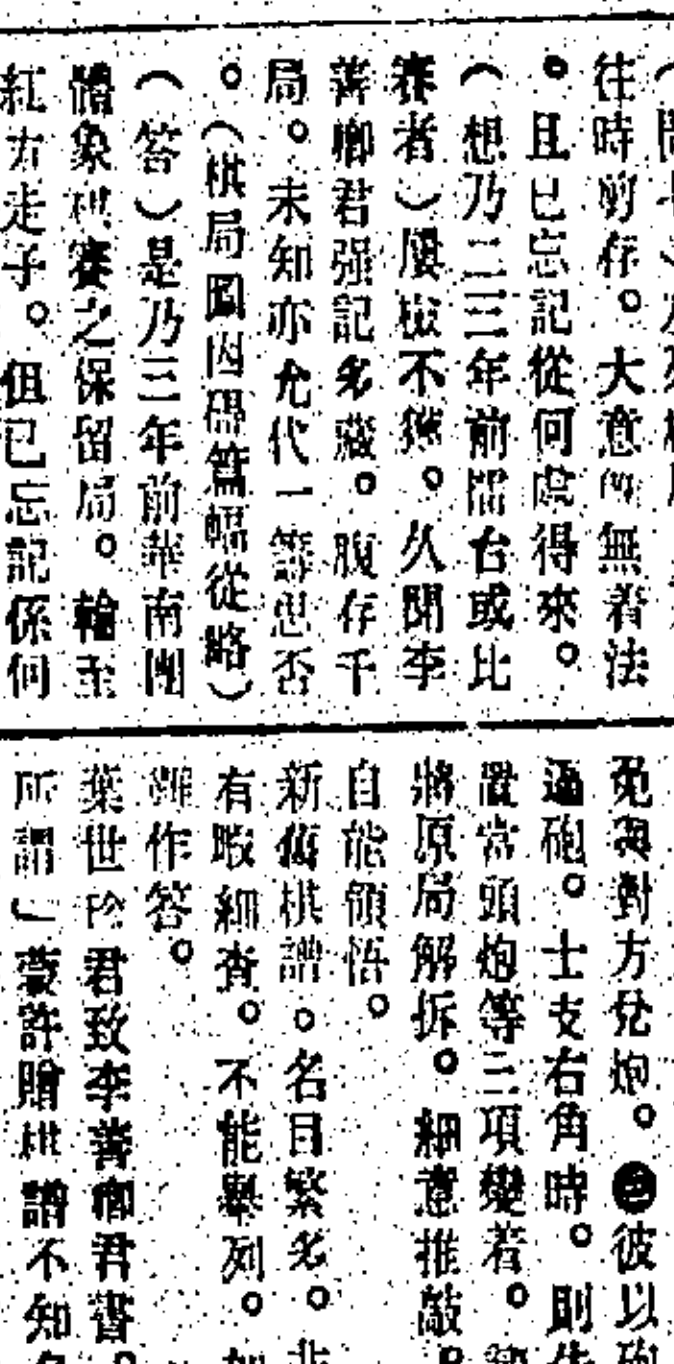 往時剪存。大意謂無着法
。且已忘記從何處得來。
（想乃二三年前擂台或比
賽者）屢檢不獲。久聞李
善卿君强記多藏。腹存千
局。未知亦允代一籌思否
。（棋局圖因碍篇幅從略）
（答）是乃三年前華南團
體象棋賽之保留局。輪至
紅方走子。但已忘記係何
免與對方兌炮。㊂彼以砲
過砲。士支右角時。則
置當頭炮等三項變着。
將原局解拆。細意推敲。
自能領悟。
新舊棋譜。名目繁多。非
有暇細查。不能舉列。
作答。
葉世 君致李善卿君書。
所謂」蒙許贈棋譜不知